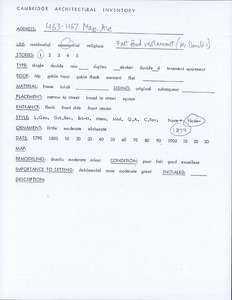 CAMBRIDGE ARCHITECTURAL INVENTORY
ADDRESS: 463-467 Mass. Ave
USE: residential commercial religious Fast food restaurant (McDonald's)
STORIES: 1 2 3 4 5
TYPE: single double row duplex decker double_d tenement apartment
ROOF: hip gable front gable flank mansard flat
MATERIAL: frame brick SIDING: original subsequent
PLACEMENT: narrow to street broad to street square
ENTRANCE: flank front side front center
STYLE: L.Geo, Grk.Rev, Brkt, Mans, Med, Q.A., C.Rev, None
ORNAMENT: little moderate elaborate 1974
DATE: 1790 1800 10 20 30 40 50 60 70 80 90 1900 10 20 30
MAP:
REMODELING: drastic moderate minor CONDITION: poor fair good excellent
IMPORTANCE TO SETTING: detrimental none moderate great INITIALED:
DESCRIPTION: